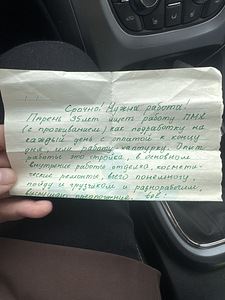 Срочно! Нужна работа!
Парень 35лет ищет работу ПМЖ
(с проживанием) как подработку на
каждый день с оплатой к концу
дня, или работу халтурку. Опыт
работы это стройка, в основном
внутрение работы отделка, космети-
ческие ремонты, всего понемногу,
пойду и грузчиком и разнорабочим,
выслушаю предложение.